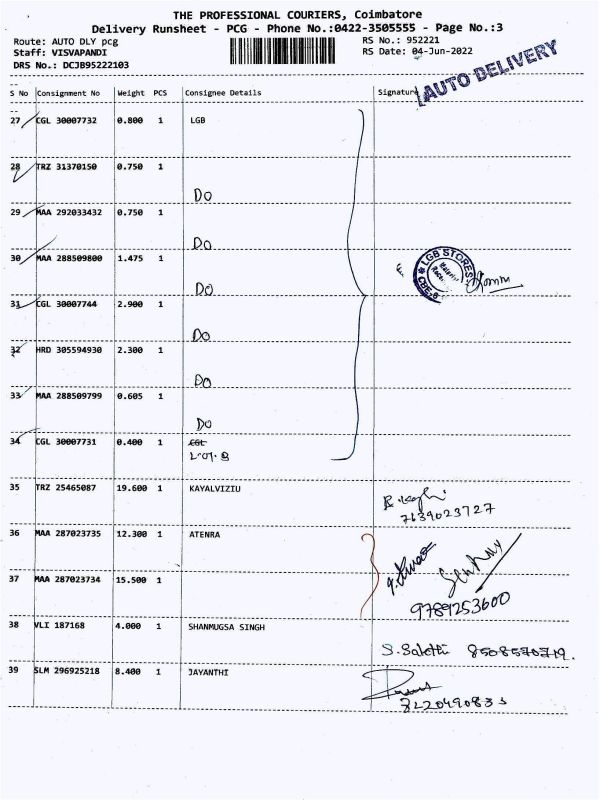 THE PROFESSIONAL COURIERS, Coimbatore
Delivery Runsheet - PCG - Phone No.:0422-3505555 - Page No.:3
Route: AUTO DLY pcg
RS No.: 952221
Staff: VISVAPANDI
RS Date: 04-Jun-2022
DRS No.: DCJB95222103
AUTO DELIVERY
S No Consignment No Weight PCS Consignee Details Signature
27 CGL 30007732 0.800 1 LGB
28 TRZ 31370150 0.750 1
DO
29 MAA 292033432 0.750 1
DO
30 MAA 288509800 1.475 1
LGB STORES
CBE-6
DO
31 CGL 30007744 2.900 1
DO
32 HRD 305594930 2.300 1
DO
33 MAA 288509799 0.605 1
DO
34 CGL 30007731 0.400 1
35 TRZ 25465087 19.600 1 KAYALVIZIU
7639023727
36 MAA 287023735 12.300 1 ATENRA
37 MAA 287023734 15.500 1
9789253600
38 VLI 187168 4.000 1 SHANMUGSA SINGH
39 SLM 296925218 8.400 1 JAYANTHI